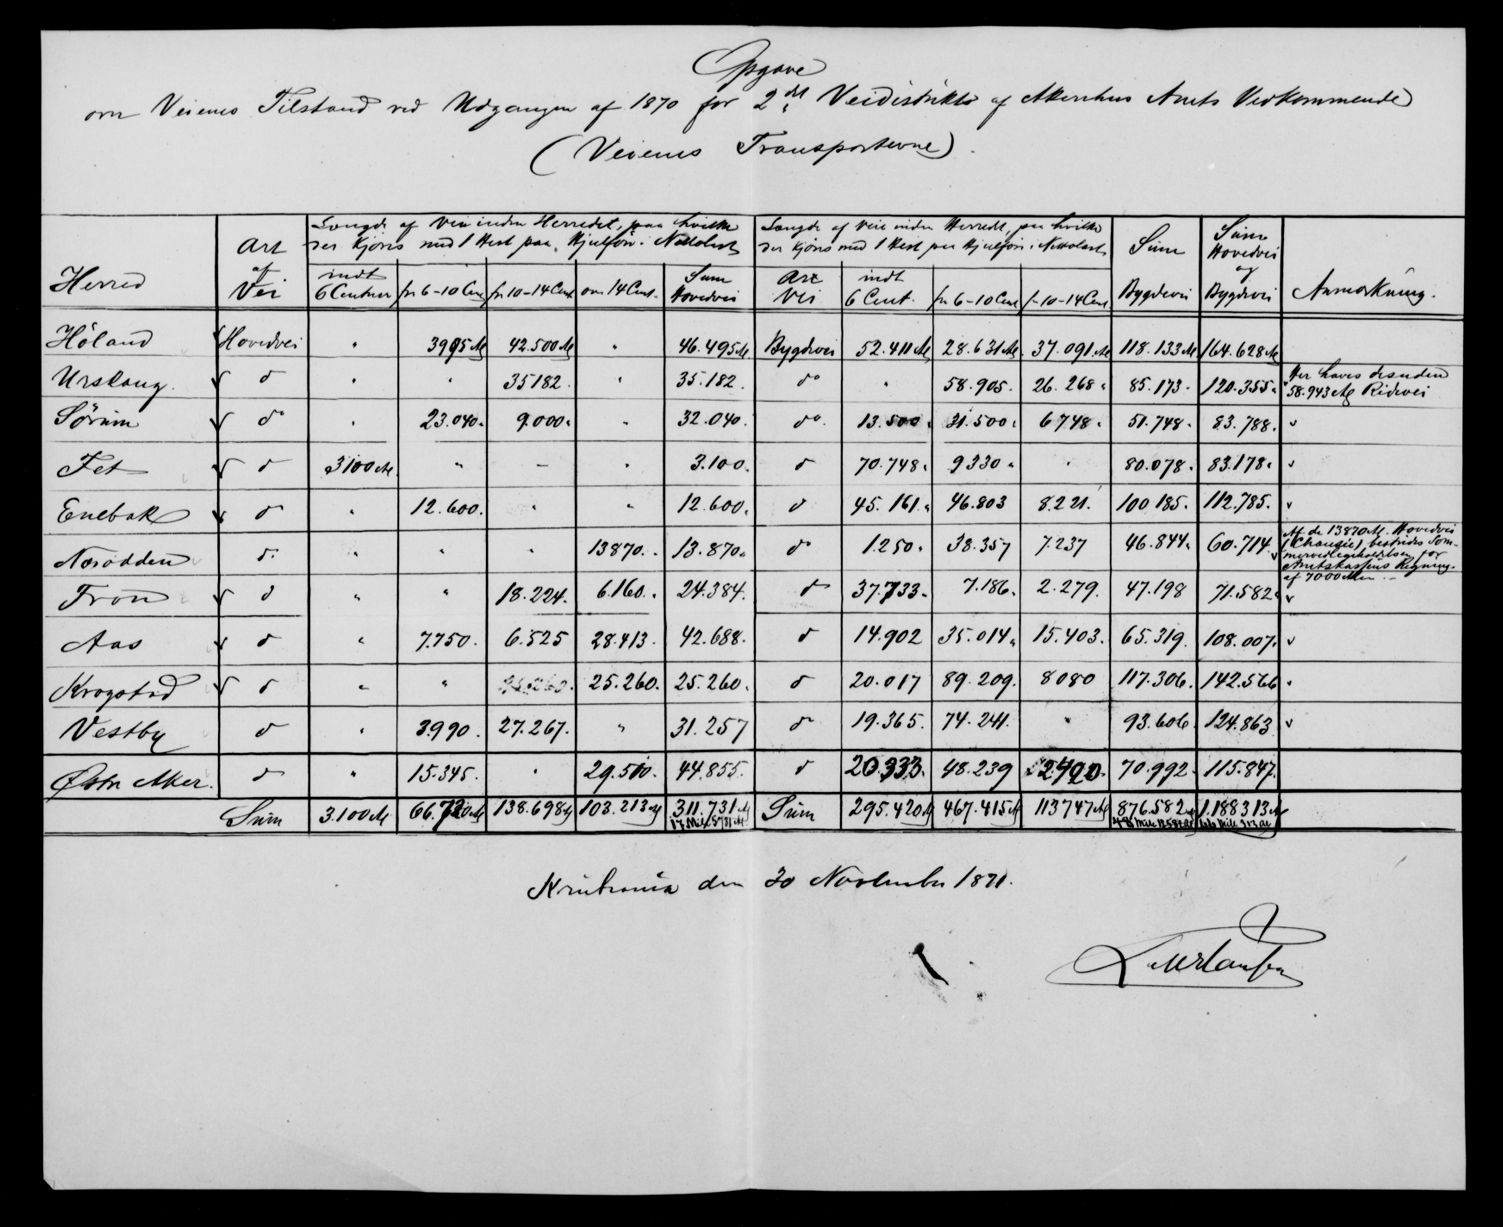 Opgave
om Veienes Tilstand ved Udgangen af 1870 for 2det Veidistrikts af Akershus Amts Vedkommende
(Veienes Transportevne).
Herred | Art af Vei | Længde af Veie inden Herredet, paa hvilke der kjøres med 1 Hest paa Hjulføre i Nettolast | Længde af Veie inden Herredet, paa hvilke der kjøres med 1 Hest paa Hjulføre i Nettolast | Sum Bygdevei | Sum Hovedvei og Bygdevei | Anmærkning.
indt 6 Centner | fra 6-10 Cent | fra 10-14 Cent | over 14 Cent. | Sum Hovedvei | Art Vei | indt 6 Cent. | fra 6-10 Cent | fr-10-14 Cent
Høland | Hovedvei | " | 3995 Al | 42.500 Al | " | 46.495 Al | Bygdevei | 52.411 Al | 28.631 Al | 37.091 Al | 118.133 Al | 164.628 Al
Urskoug. | do | " | " | 35182. | " | 35.182. | do | " | 58.905. | 26.268 " | 85.173. | 120.355. | Her haves desuden 58.943 Al Ridevei
Sørum | do | " | 23.040. | 9.000. | " | 32.040. | do. | 13.500. | 31.500. | 6748. | 51.748. | 83.788.
Fet | do | 3100 Al. | " | " | " | 3.100. | do | 70.748. | 9330 " | " | 80.078. | 83.178.
Enebak | do | " | 12.600. | " | " | 12.600. | do | 45.161. | 46.803 | 8.221. | 100185. | 112.785.
Nesodden | do. | " | " | " | 13870. | 13.870. | do | 1.250. | 38.357 | 7.237 | 46.844. | 60.714 | Af de 13870 Al. Hovedvei (Chausée) bestrides Sommervedligeholdelsen for Amtskassens Regning af 7000 Alen.
Fron | do | " | " | 18.224. | 6.160. | 24.384. | do | 37.733. | 7.186. | 2.279. | 47.198 | 71.582.
Aas | do | " | 7.750. | 6.525 | 28.413. | 42.688. | do | 14.902 | 35.014. | 15.403. | 65.319. | 108.007.
Krogstad | do | " | " | 25.260. | 25.260. | do | 20.017 | 89.209. | 8080 | 117.306. | 142.566.
Vestby | do | " | 3990. | 27.267. | " | 31.257 | do | 19.365. | 74.241. | " | 93.606. | 124.863
Østre Aker. | do | " | 15.345. | " | 29.510. | 44.855. | do | 20.333. | 48.239 | 2420. | 70.992. | 115.847.
Sum | 3.100 Al | 66.720 Al | 138.698 Al | 103.213 Al | 311.731 Al | Sum | 295.420 Al | 467.415 Al | 113747 Al | 876.582 Al | 1.188313 Al
17 Mil 5731 Al | 48 Mile 12582 Al | 66 Mile 313 Al
Kristiania den 30 November 1871.